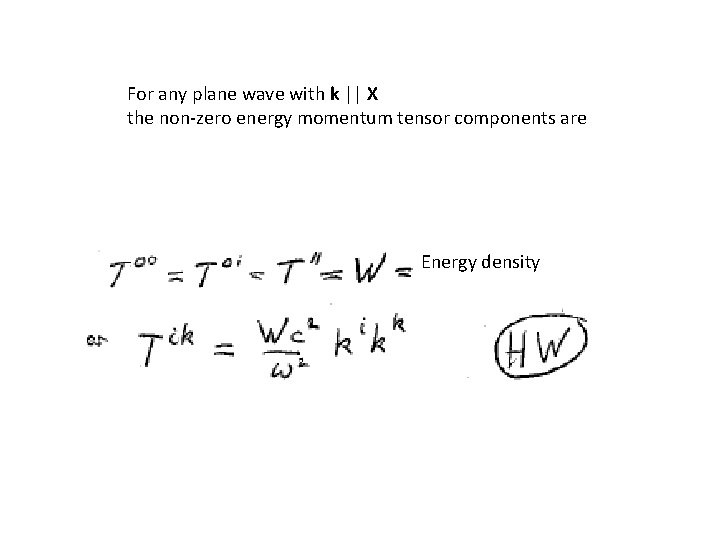 For any plane wave with k || X
the non-zero energy momentum tensor components are
T⁰⁰ = T⁰ⁱ = T¹¹ = W = Energy density
or Tⁱᵏ = Wc²/ω² kⁱkᵏ HW